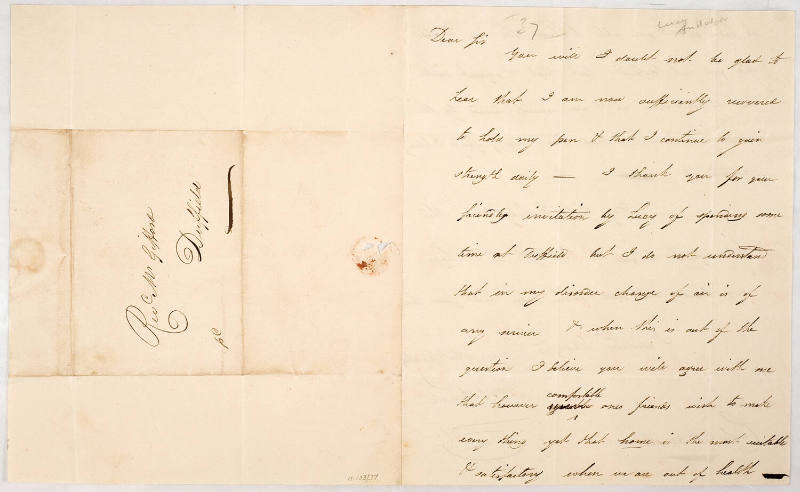 Revd Mr Gifford
Duffield
pd
37
Lucy
Dear Sir
You will I doubt not be glad to
hear that I am now sufficiently recovered
to hold my pen & that I continue to gain
strength daily — I thank you for your
friendly invitation by Lucy of spending some
time at Duffield but I do not understand
that in my disorder change of air is of
any service & when this is out of the
question I believe you will agree with me
that however comfortable ones friends wish to make
every thing yet that home is the most suitable
& satisfactory when we are out of health —